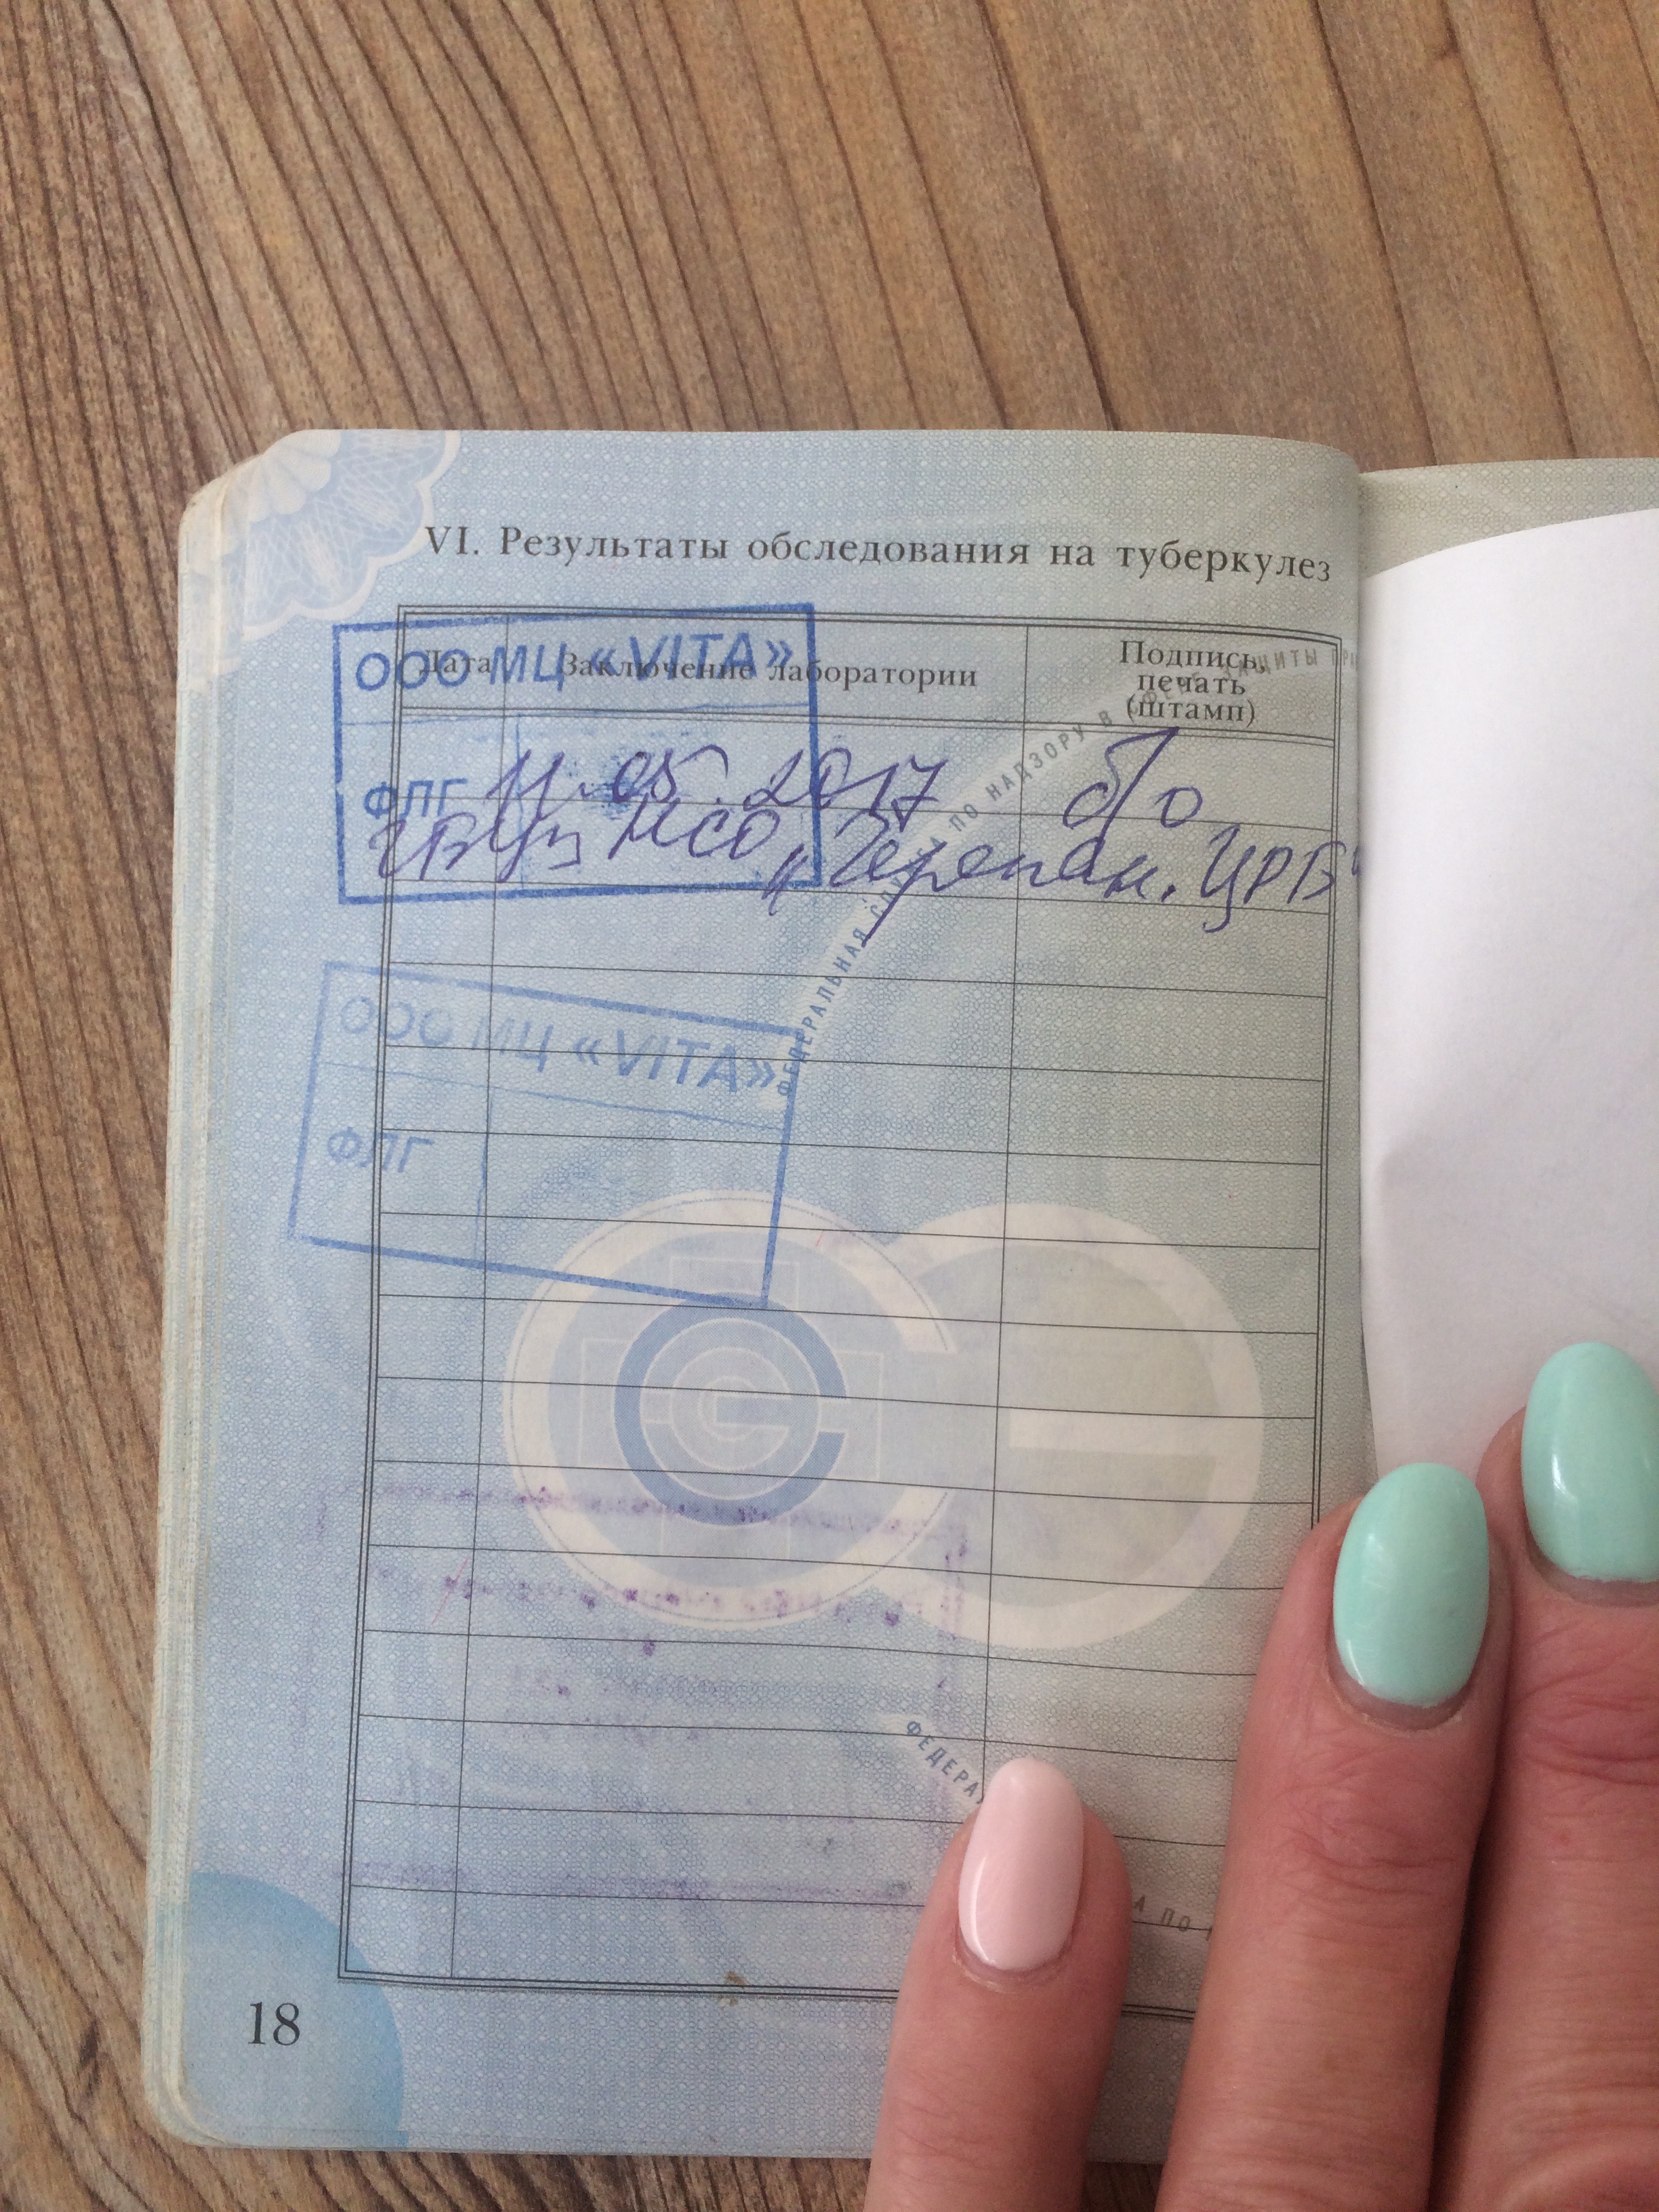 VI. Результаты обследования на туберкулез
ООО МЦ «VITA»
Дата Заключение лаборатории Подпись, печать (штамп)
ФЛГ 11.05.2017 б/о
ГБУЗ НСО „Черепан. ЦРБ“
ООО МЦ «VITA»
ФЛГ
ФЕДЕРАЛЬНАЯ СЛУЖБА ПО НАДЗОРУ В СФЕРЕ ЗАЩИТЫ
ФЕДЕРА
ПО
18